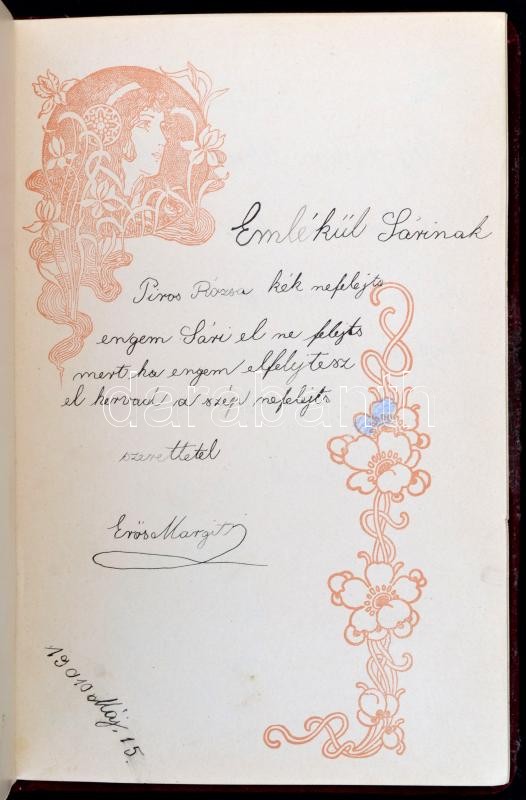 Emlékül Sárinak
Piros Rózsa kék nefelejts
engem Sári el ne felejts
mert ha engem elfelejtesz
el hervad a szép nefelejts
szerettetel
Erős Margit
1901 Máj. 15.
darabanth